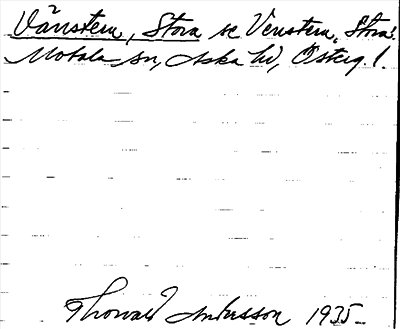 Vänstern, Stora se Venstern, Stora.
Motala sn, Aska hd, Österg. l.
Thorwald Andersson 1935